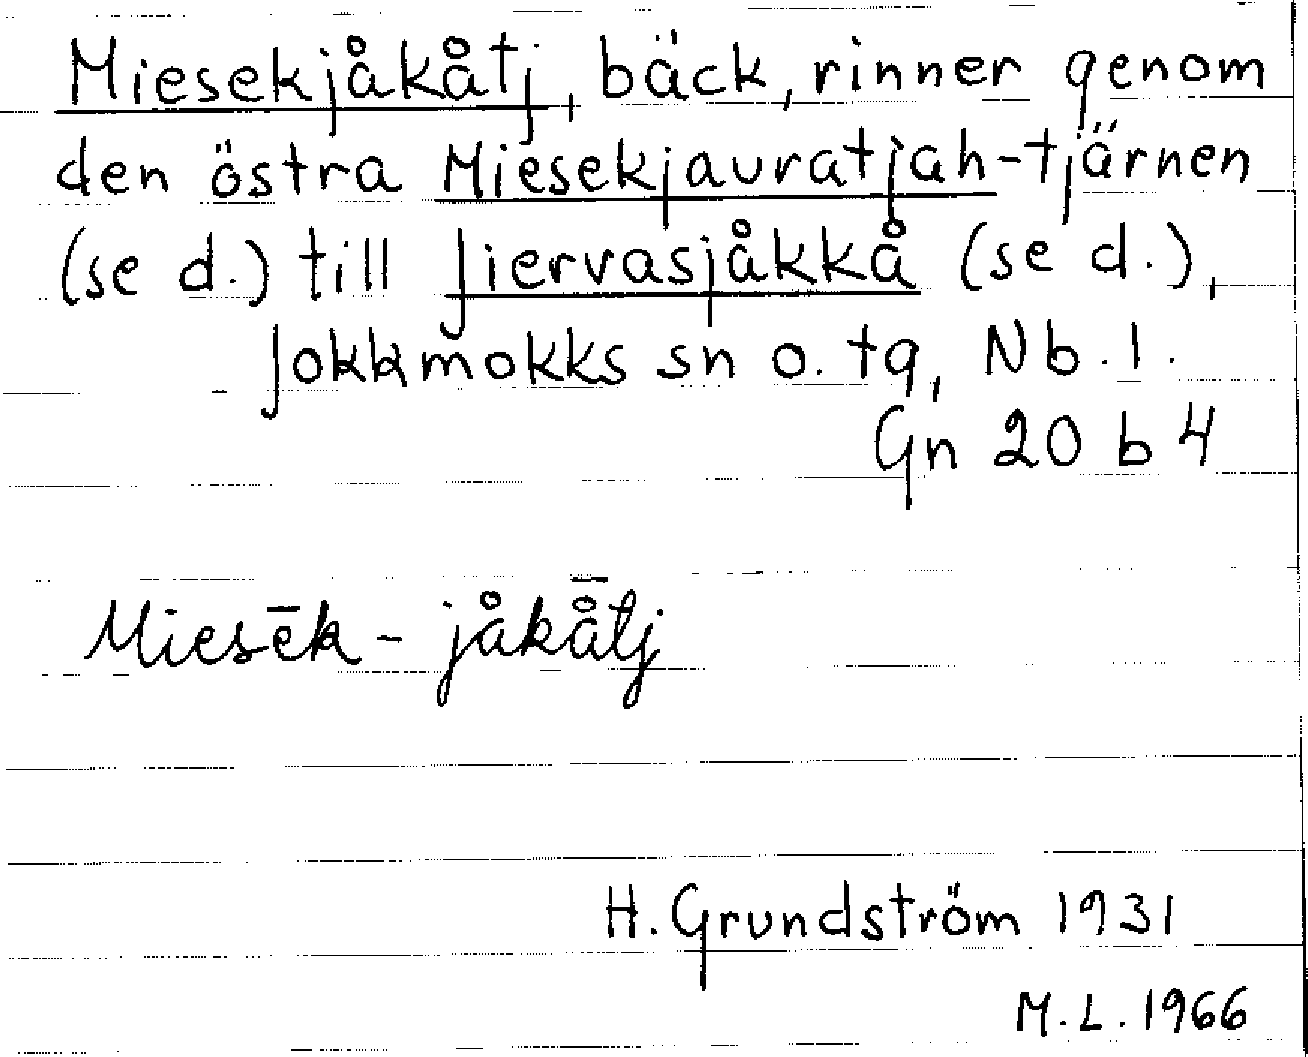 Miesekjåkåtj, bäck, rinner genom
den östra Miesekjauratjah-tjärnen
(se d.) till Jiervasjåkkå (se d.),
Jokkmokks sn o. tg, Nb. l.
Gn 20 b 4
Miesēk - jåkå̄tj
H. Grundström 1931
M. L. 1966